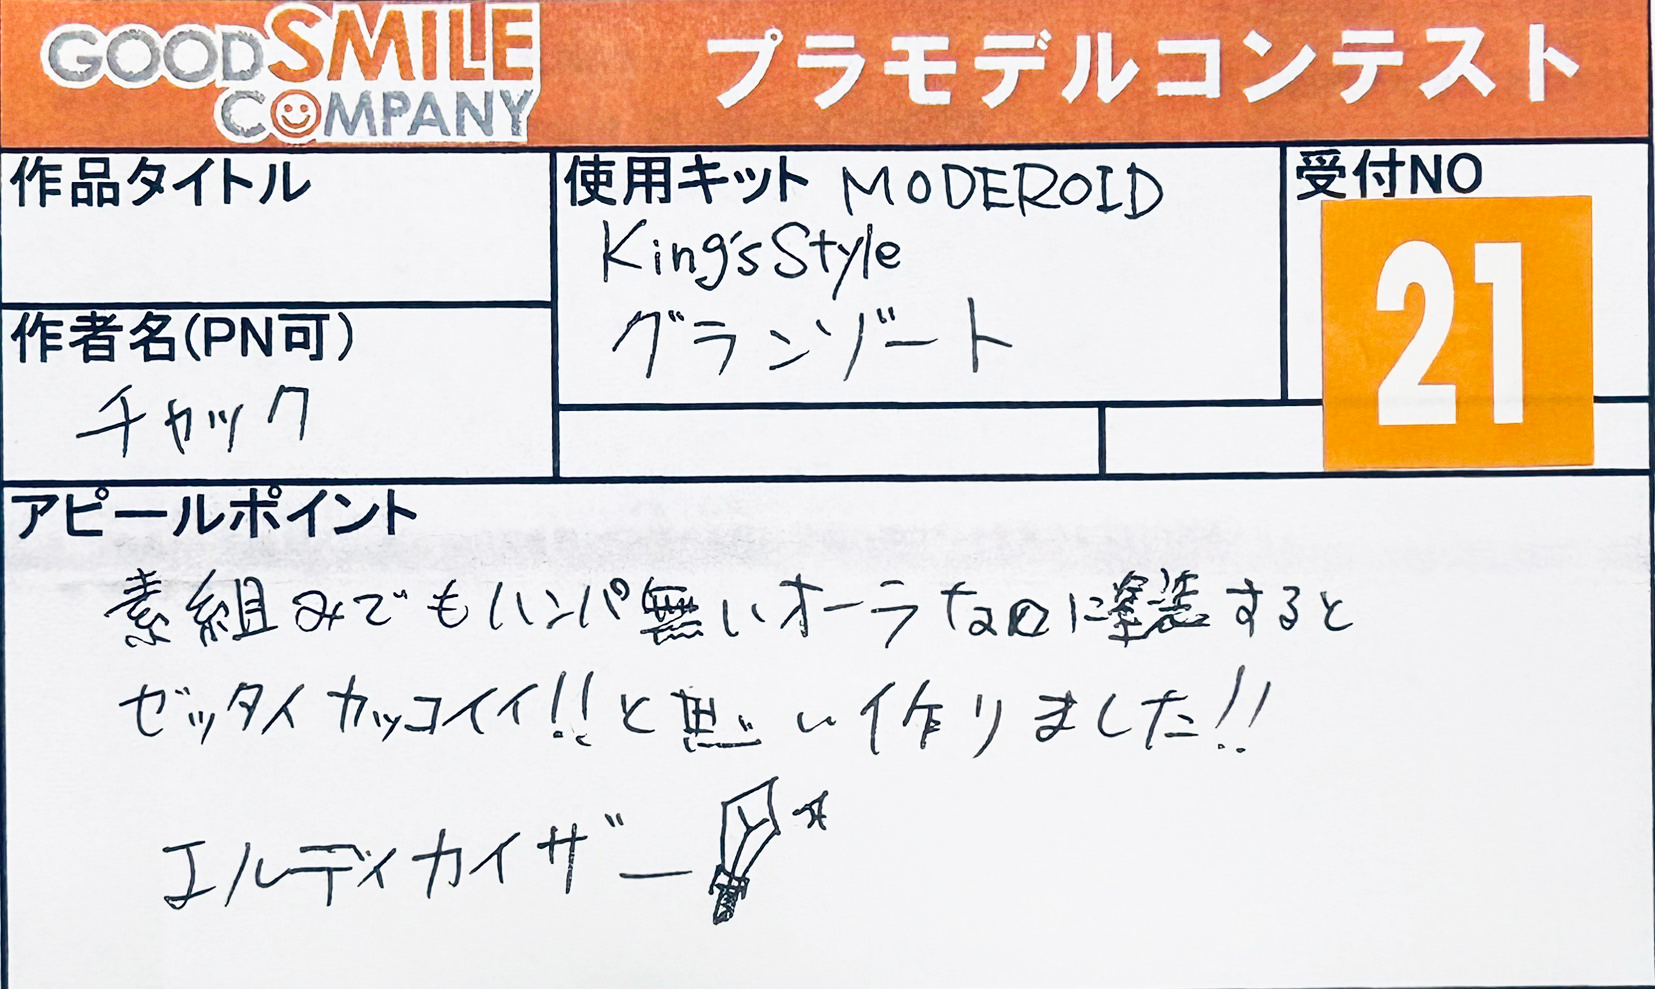 GOODSMILE
COMPANY
プラモデルコンテスト
作品タイトル
使用キット MODEROID
King'sStyle
グランゾート
受付NO
21
作者名(PN可)
チャック
アピールポイント
素組みでもハンパ無いオーラなのに塗装すると
ゼッタイカッコイイ!!と思い作りました!!
エルディカイザー